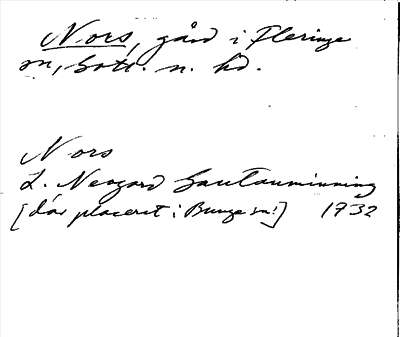 Nors, gård i Fleringe
sn, Gotl. n. hd.
Nors
L. Neogard Gautauminning
[där placeret i Bunge sn!] 1732